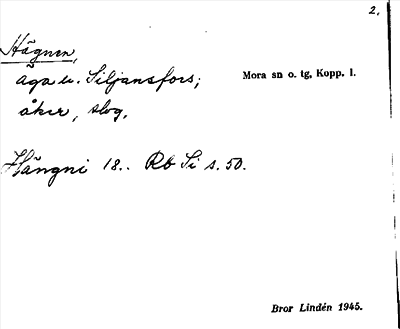 2.
Hägnen,
äga u. Siljansfors;
Mora sn o. tg, Kopp. l.
åker, slog.
Hängni 18.. Rb Si s. 50.
Bror Lindén 1945.